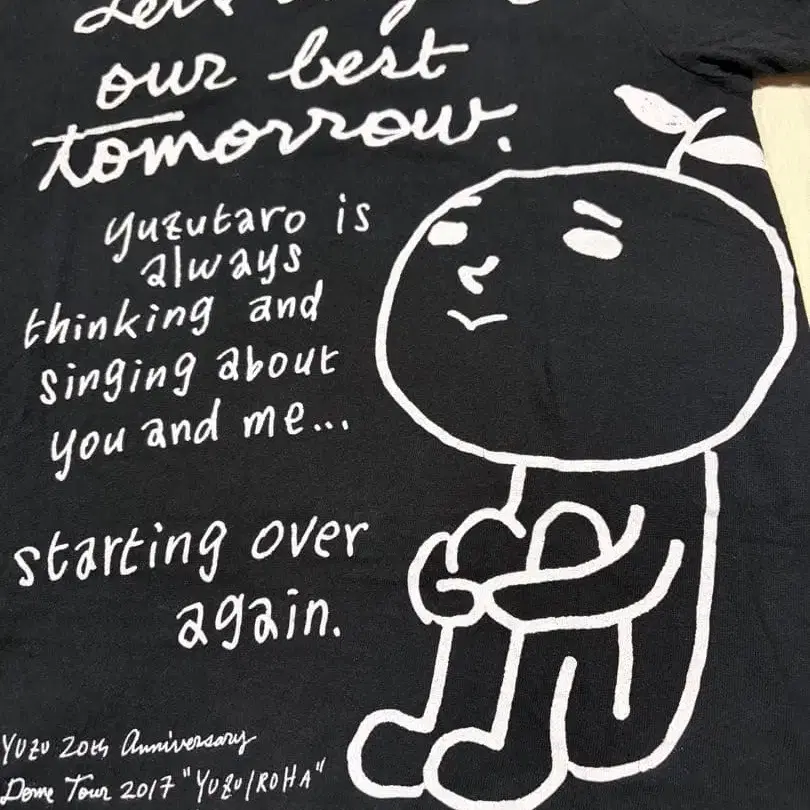 our best
tomorrow.
yuzutaro is
always
thinking and
singing about
you and me...
starting over
again.
YUZU 20th Anniversary
Dome Tour 2017 "YUZU/ROHA"